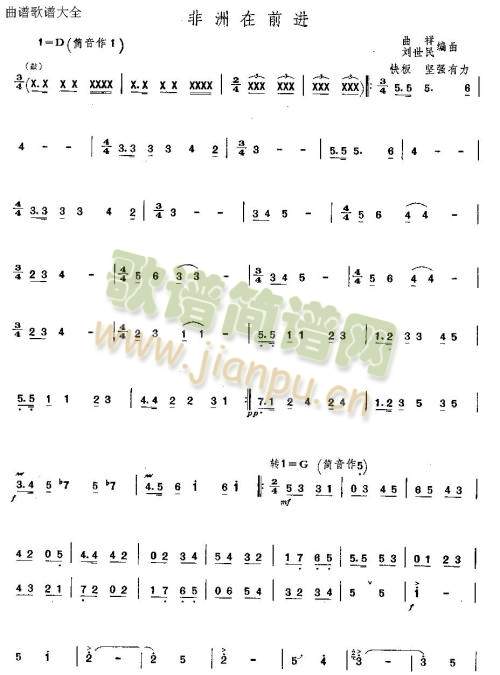 曲谱歌谱大全
非洲在前进
1=D(筒音作1)
曲祥
刘世民 编曲
快板 坚强有力
(鼓)
3/4 (X.X XX XXXX | X.X XX XXXX | 2/4 XXX XXX | XXX XXX) |: 3/4 5.5 5. 6
4 - - | 4/4 3.3 3 3 4 2 | 3/4 3 - - | 5.5 5. 6 | 4 - -
4/4 3.3 3 3 4 2 | 3/4 3 - - | 3 4 5 - | 4/4 5 6 4 -
3/4 2 3 4 - | 4/4 5 6 3 3 | 3/4 3 4 5 - | 4/4 5 6 4 -
3/4 2 3 4 - | 4/4 2 3 1 1 - | 5.5 1 1 2 3 | 1.2 3 3 4 5
5.5 1 1 2 3 | 4.4 2 2 3 1 :| 7.1 2 4 2 4 | 1.2 3 5 3 5
pp
转1=G (筒音作5)
3.4 5 ♭7 5 ♭7 | 4.5 6 i 6 i |: 2/4 5 3 3 1 | 0 3 4 3 | 6 5 4 5
f
mf
4 2 0 5 | 4. 4 4 2 | 0 2 3 4 | 5 4 3 2 | 1 7 6 5 | 5 5 5 3 | 0 1 2 3
4 3 2 1 | 7 2 0 2 | 0 6 5 4 | 3 2 1 2 | 1 7 6 5 | 5 5 | i 0 2 3
f
5 i | 2 - | 2 - | 2 - | 5 4 | 3 - | 3 5
歌谱简谱网
www.jianpu.cn